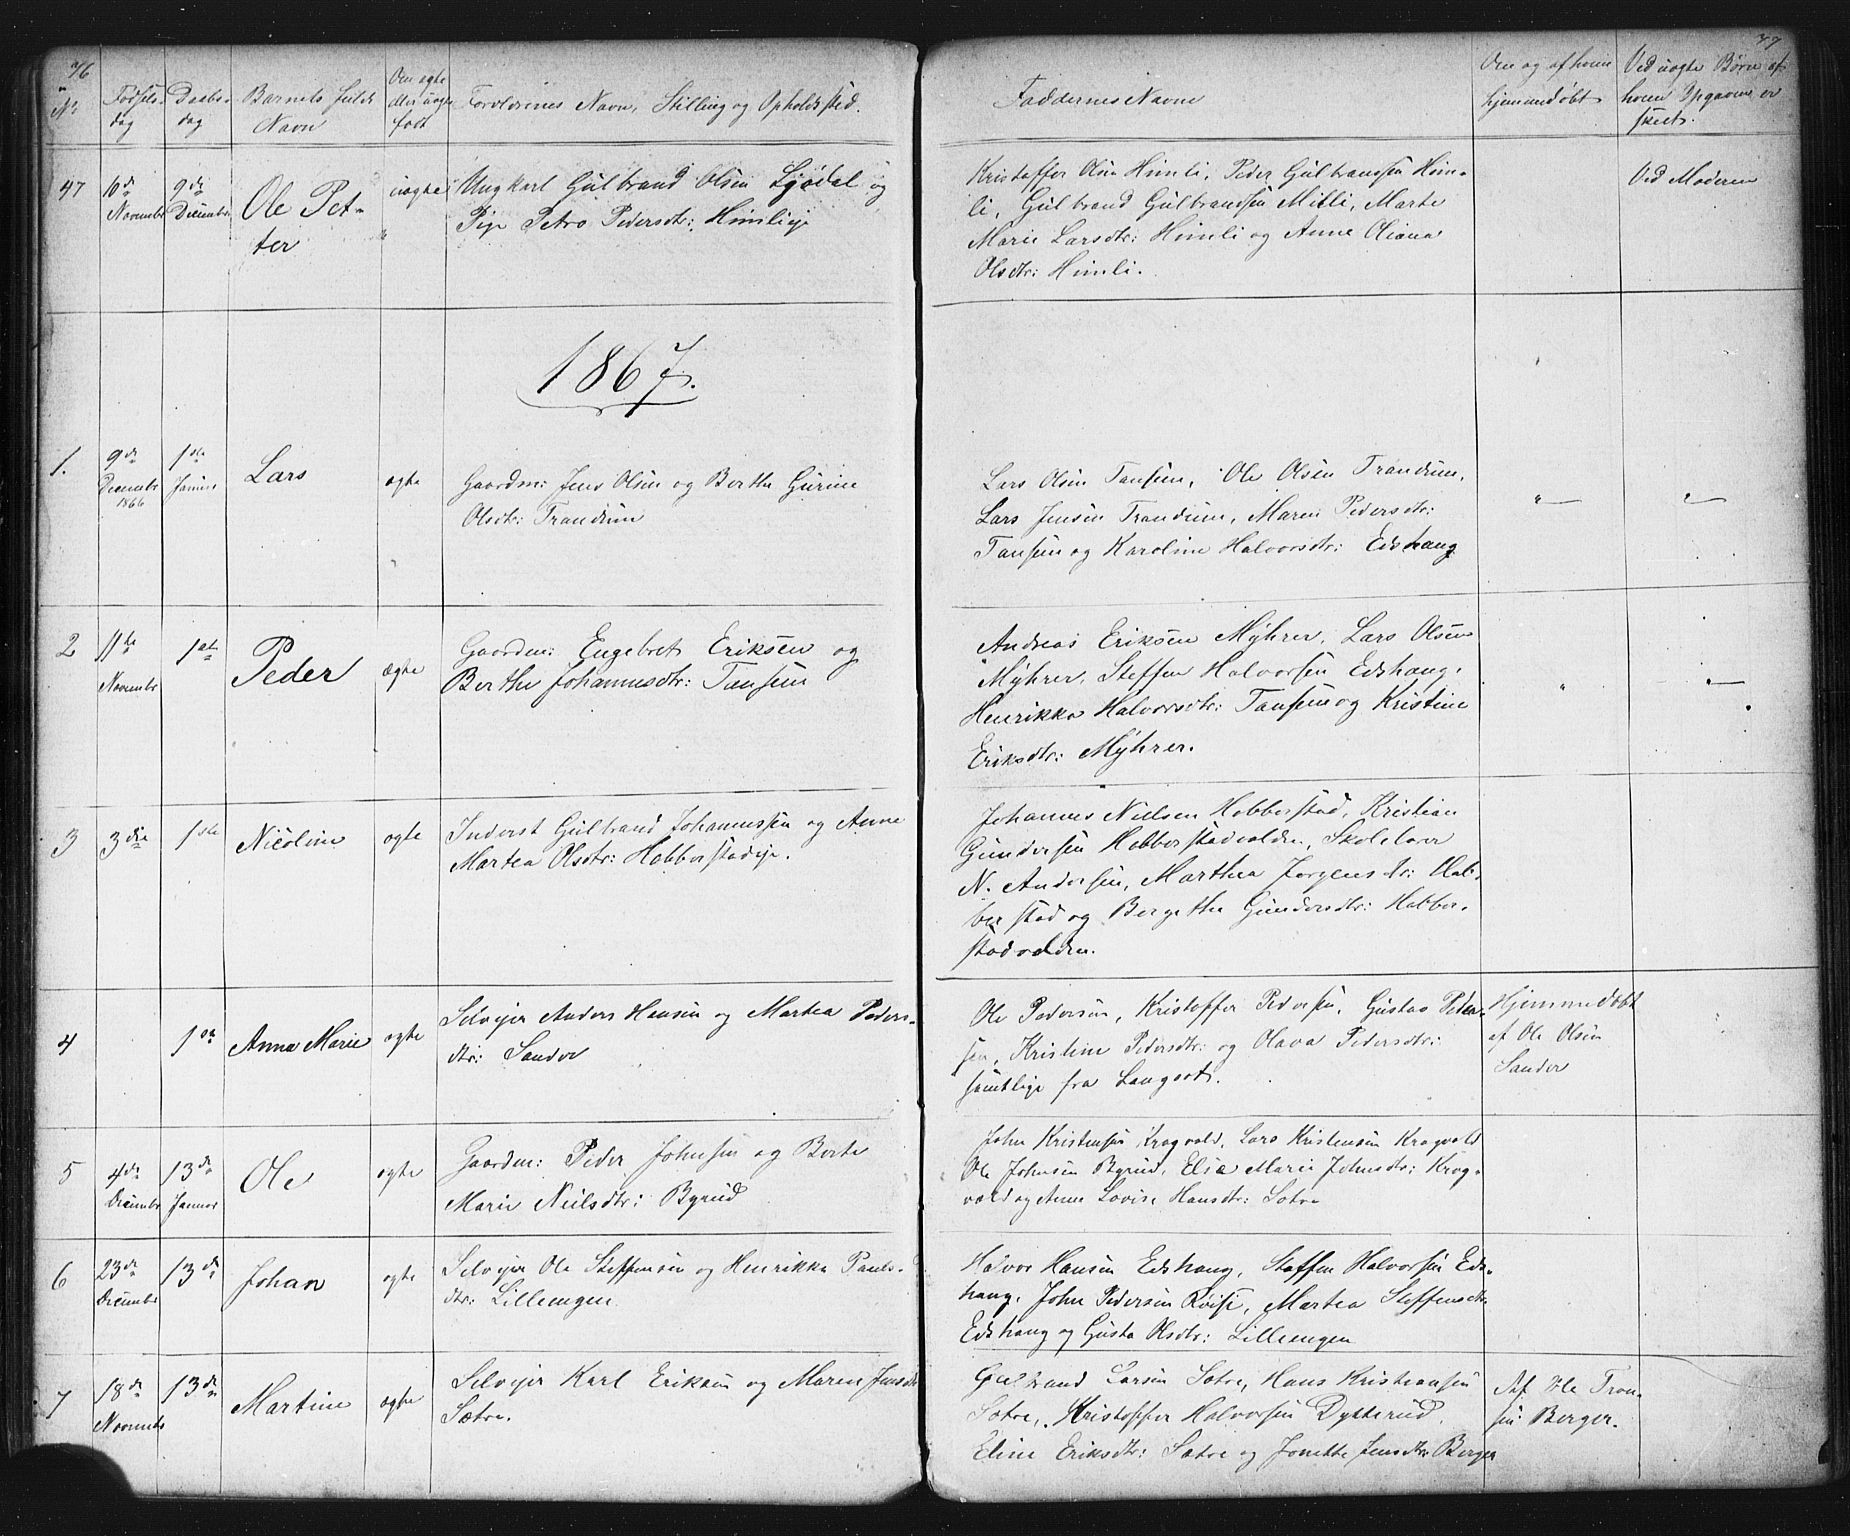 76
No
Fødsels-
dag
Daabs-
dag
Barnets fulde
Navn
Om ægte
eller uægte
født
Forældrenes Navn, Stilling og Opholdssted.
47
10de
Novembr
9de
Decembr
Ole Pet-
ter
uægte
Ungkarl Gulbrand Olsen Sjødal og
Pige Petro Pedersdtr: Himlieje
1867.
1.
9de
Decembr
1866
1ste
Januar
Lars
ægte
Gaardm: Jens Olsen og Berthe Gurine
Olsdtr: Trandum
2
11te
Novembr
1ste
Peder
ægte
Gaardm: Engebret Eriksen og
Berthe Johannesdtr: Tansem
3
3die
1ste
Nicoline
ægte
Inderst Gulbrand Johannessen og Anne
Martea Olsdtr: Habberstadeje.
4
Anna Marie
ægte
Selvejer Anders Hansen og Martea Peders-
dtr: Sander
5
4de
Decembr
13de
Januar
Ole
ægte
Gaardm: Peder Johnsen og Berte
Marie Neilsdtr: Byrud
6
23de
Decembr
13de
Johan
ægte
Selvejer Ole Steffensen og Henrikka Pauls-
dtr: Lilleengen
7
18de
Novembr
13de
Martine
ægte
Selvejer Karl Eriksen og Maren Jensdtr
Sætre.
77
Faddernes Navne
Om og af hvem
hjemmedøbt
Ved uægte Børn af
hvem Opgaven er
skeet.
Kristoffer Olsen Himli, Peder Gulbransen Him-
li, Gulbrand Gulbrandsen Mitli, Marte
Marie Larsdtr: Himli og Anne Oliana
Olsdtr: Himli.
Ved Moderen
Lars Olsen Tansem, Ole Olsen Trandum,
Lars Jensen Trandum, Maren Pedersdtr:
Tansem og Karoline Halvorsdtr: Edshaug
"
"
Andreas Eriksen Myhrer, Lars Olsen
Myhrer, Steffen Halvorsen Edshaug,
Henrikka Halvorsdtr: Tansem og Kristine
Eriksdtr: Myhrer.
"
"
Johannes Nielsen Habberstad, Kristian
Gundersen Habberstadvolden, Skolelærer
N. Andersen, Marthea Jørgensdtr: Hab-
berstad og Bergethe Gundersdtr: Habber-
stadvolden.
Ole Pedersen, Kristoffer Pedersen, Gustav Peder-
sen, Kristine Pedersdtr: og Olava Pedersdtr:
samtlige fra Sander.
Hjemmedøbt
af Ole Olsen
Sander
John Kristensen Kragvold, Lars Kristensen Kragvold
Ole Johnsen Byrud, Else Marie Johnsdtr: Krag-
vold og Anne Lovise Hansdtr: Sætre
Halvor Hansen Edshaug, Steffen Halvorsen Eds-
haug, John Pedersen Røise, Martea Steffensdtr:
Edshaug og Gusta Olsdtr: Lilleengen
Gulbrand Larsen Sætre, Hans Kristiansen
Sætre, Kristoffer Halvorsen Dysterud,
Eline Eriksdtr: Sætre og Jonette Jensdtr: Berger
Af Ole Tron-
sen Berger.